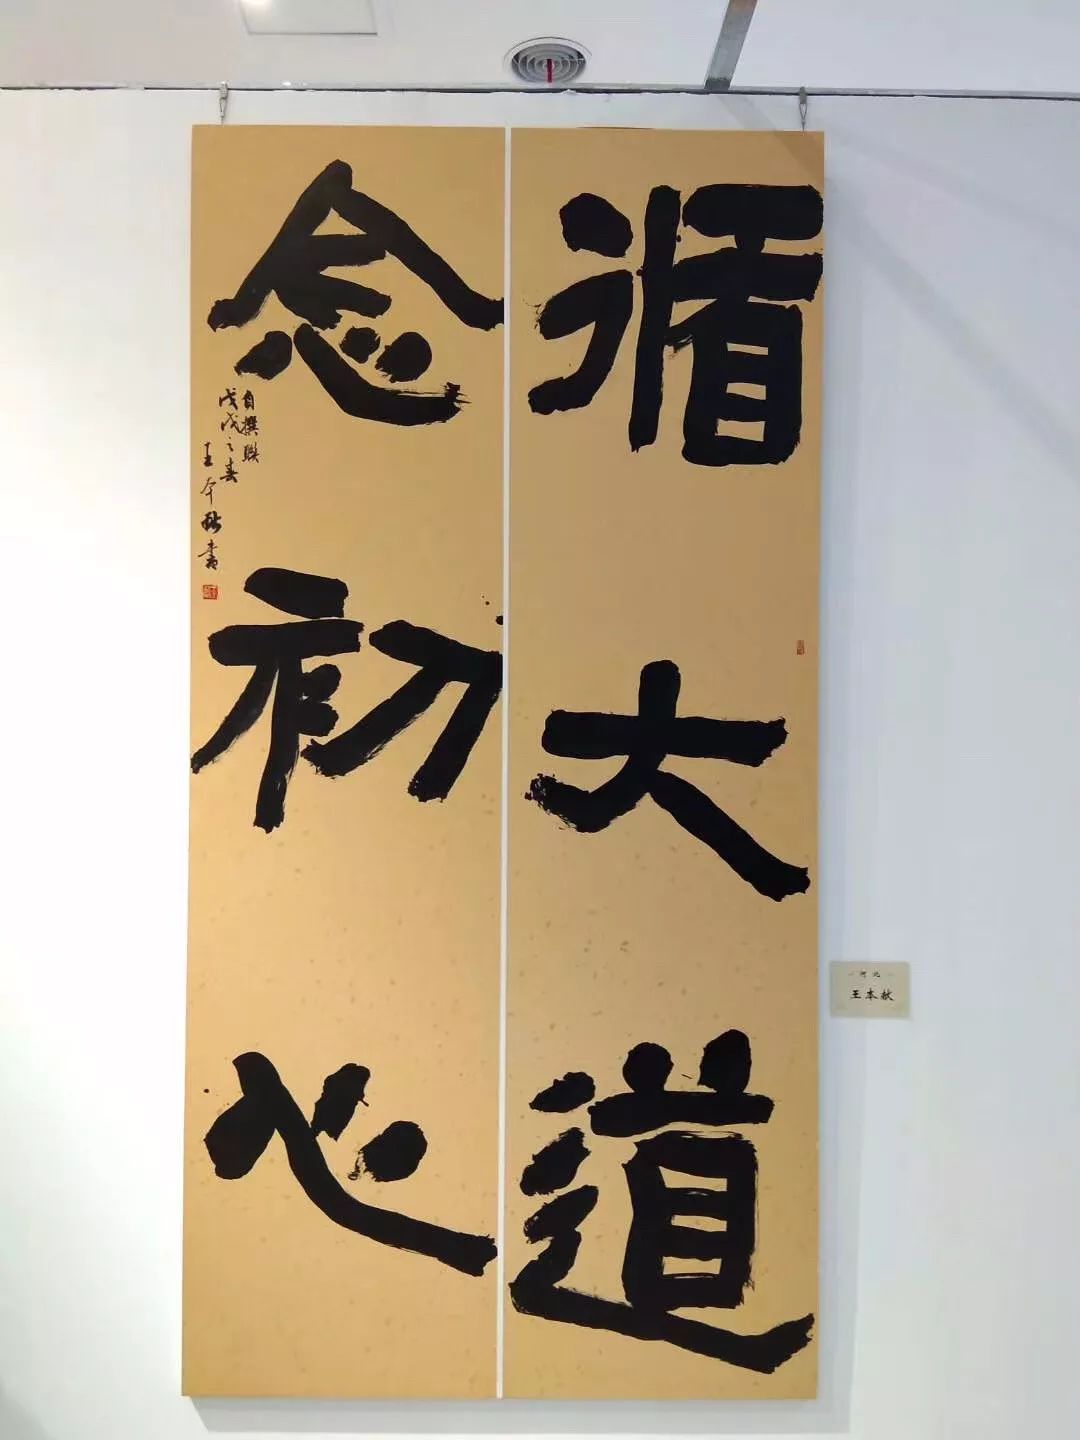 循大道
念初心
自撰联
戊戌之春
王本献书
河北
王本献